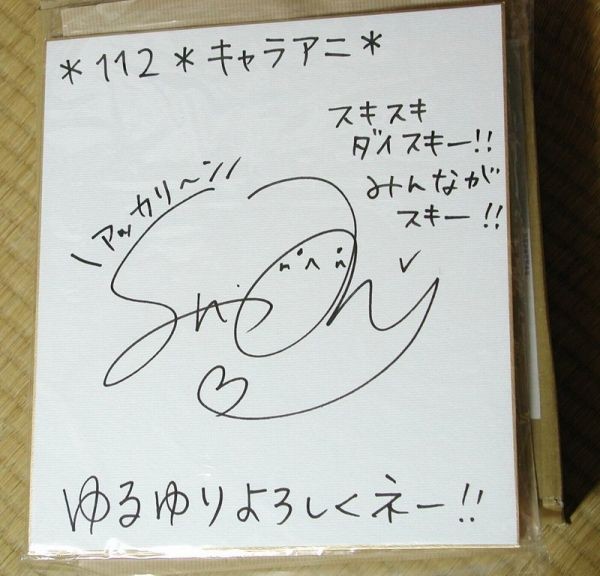 *112*キャラアニ*
スキスキ
ダイスキー!!
みんなが
スキー!!
\アッカリ〜ン/
ゆるゆりよろしくネー!!